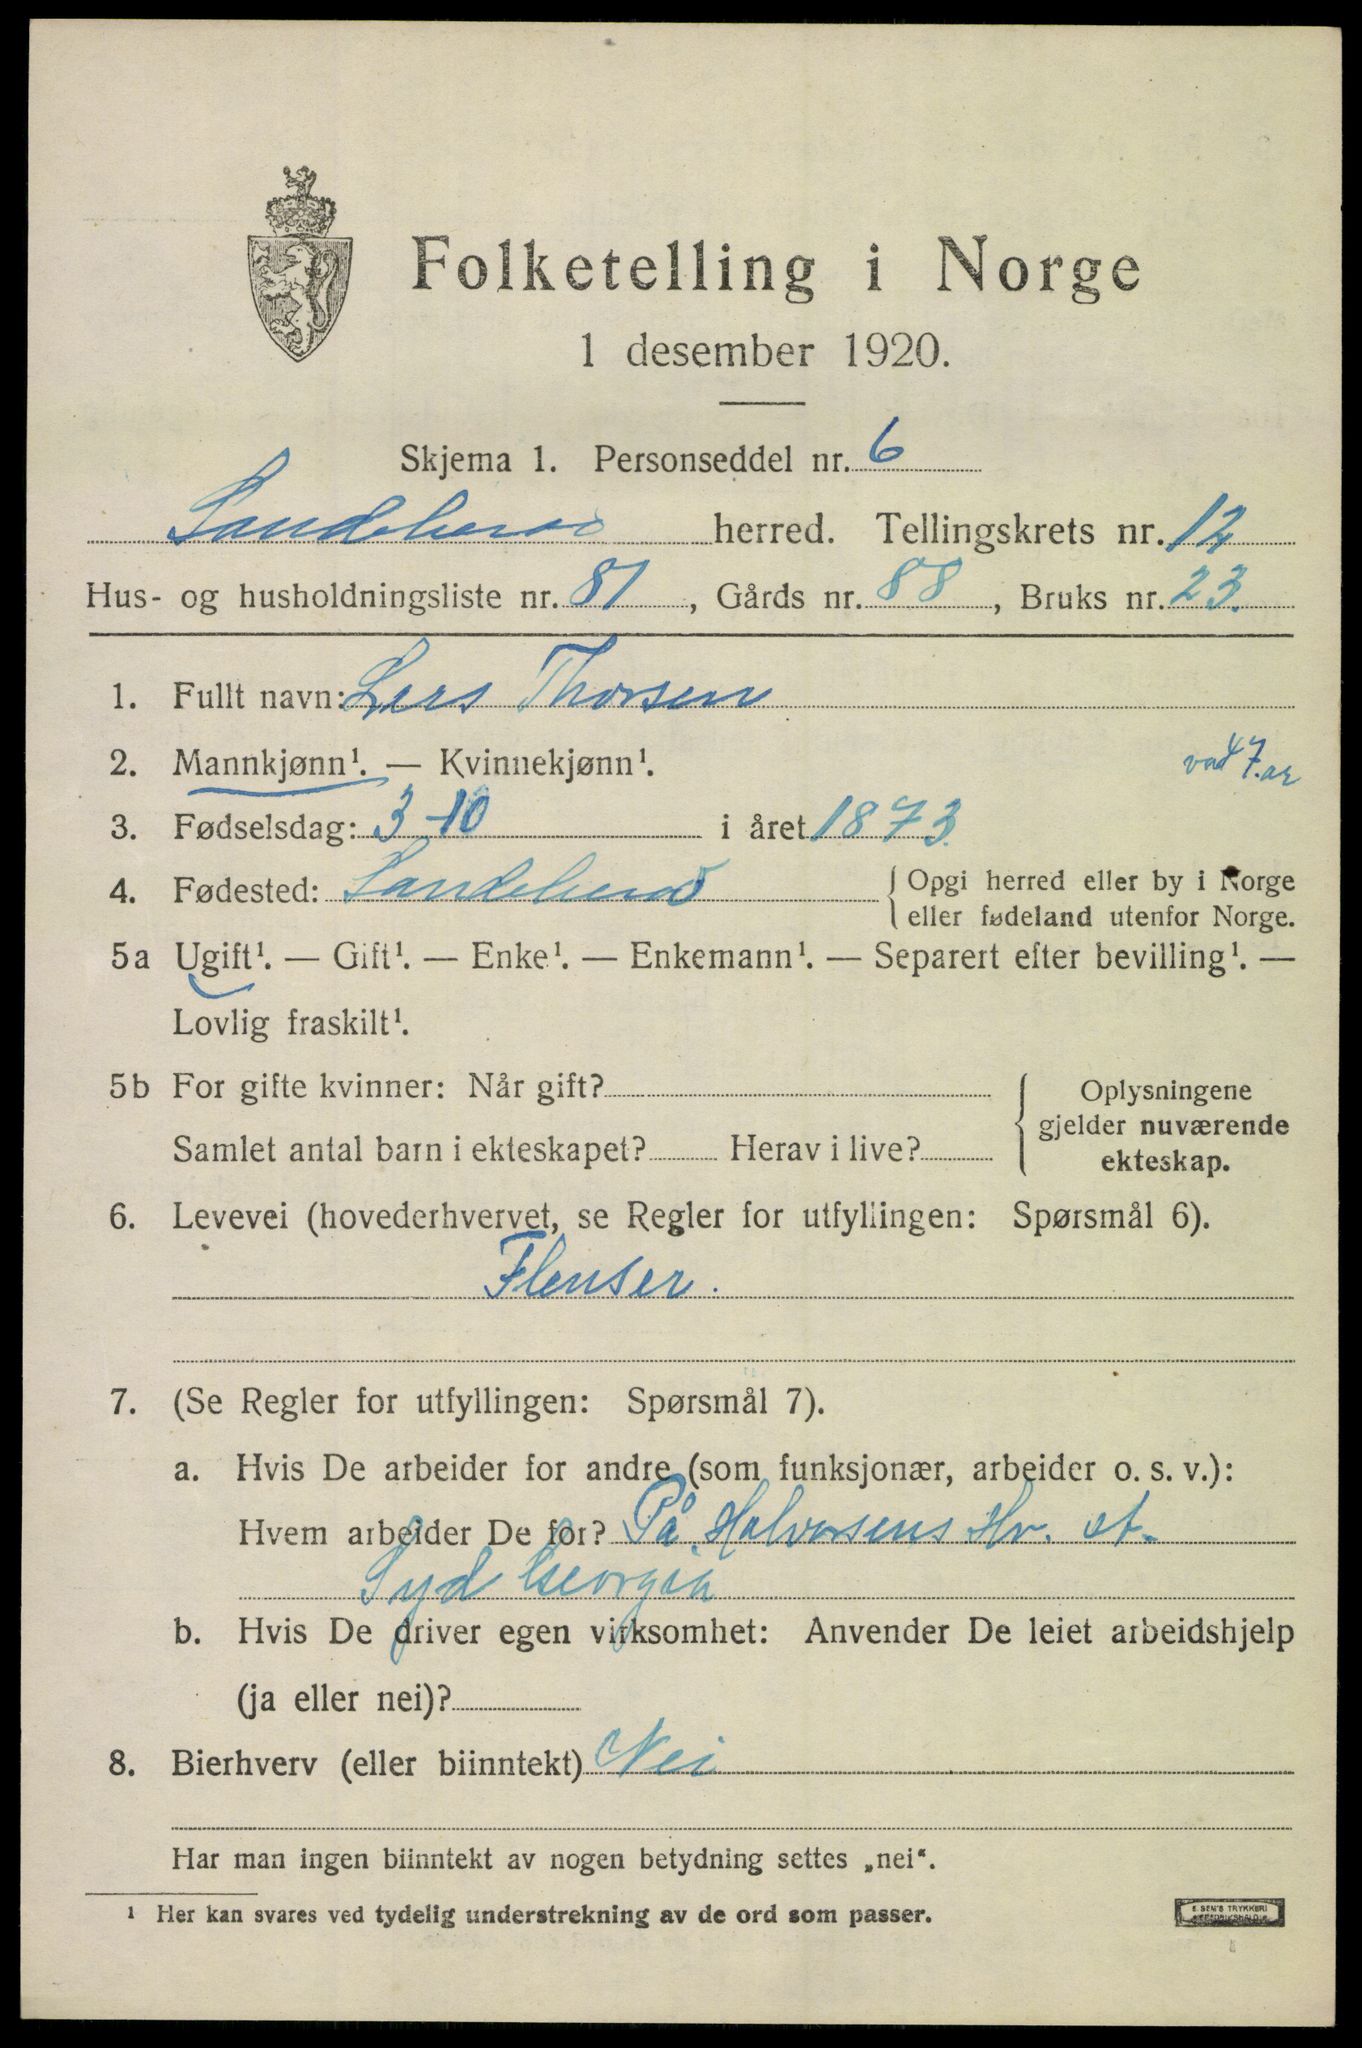 Folketelling i Norge
1 desember 1920.
Skjema 1. Personseddel nr. 6
Sandeherred herred. Tellingskrets nr. 12
Hus- og husholdningsliste nr. 81, Gårds nr. 88, Bruks nr. 23.
1. Fullt navn: Lars Thorsen
2. Mannkjønn¹. — Kvinnekjønn¹.
47. år
3. Fødselsdag: 3-10 i året 1873.
4. Fødested: Sandeherred { Opgi herred eller by i Norge
eller fødeland utenfor Norge.
5a Ugift¹. — Gift¹. — Enke¹. — Enkemann¹. — Separert efter bevilling¹. —
Lovlig fraskilt¹.
5b For gifte kvinner: Når gift?
Samlet antal barn i ekteskapet? Herav i live?
{ Oplysningene
gjelder nuværende
ekteskap.
6. Levevei (hovederhvervet, se Regler for utfyllingen: Spørsmål 6).
Flenser.
7. (Se Regler for utfyllingen: Spørsmål 7).
a. Hvis De arbeider for andre (som funksjonær, arbeider o. s. v.):
Hvem arbeider De for? På Halvorsens Hv. st.
Syd Georgia
b. Hvis De driver egen virksomhet: Anvender De leiet arbeidshjelp
(ja eller nei)?
8. Bierhverv (eller biinntekt) Nei
Har man ingen biinntekt av nogen betydning settes „nei".
¹ Her kan svares ved tydelig understrekning av de ord som passer.
E. SEM'S TRYKKERI
FREDRIKSHALD